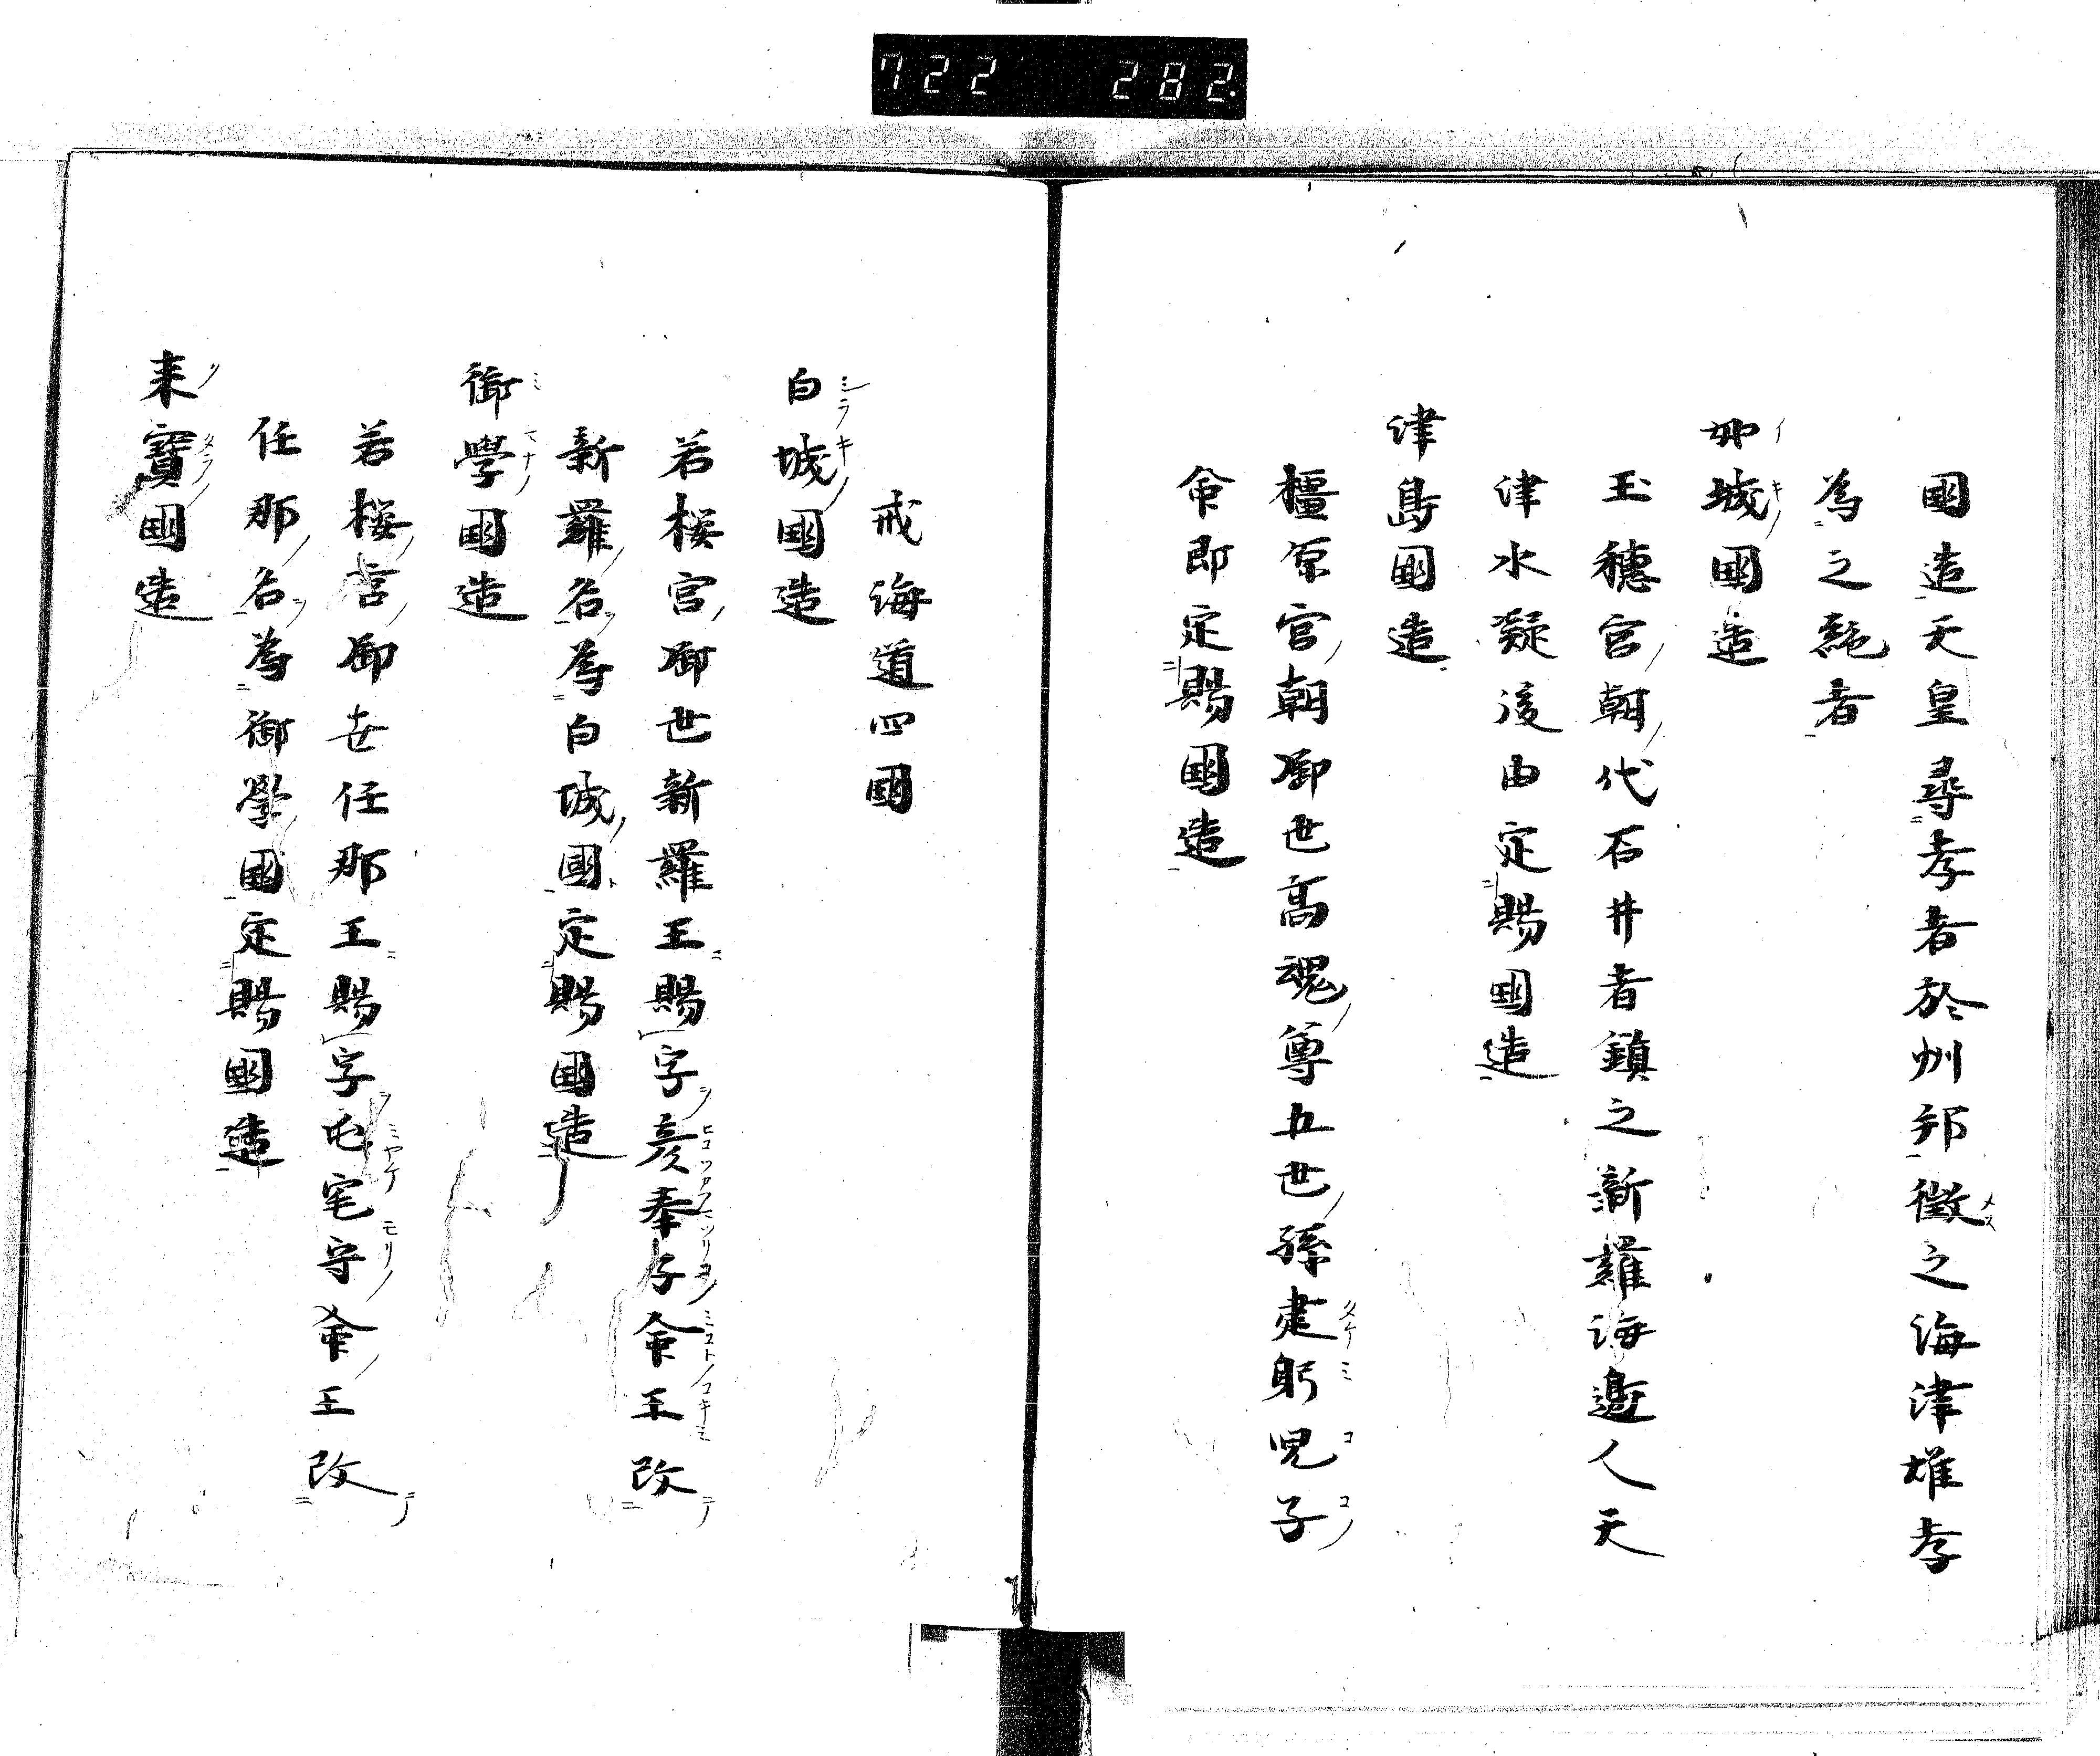 722 282.
國造天皇尋孝者於州邦徴之海津雄孝
為之純者
如城國造
玉穂宮朝代石井者鎮之新羅海邊人天
津水凝後由定賜國造
津島國造
橿原宮朝御世高魂尊五世孫建躬児子
命即定賜國造
戒海道四國
白城國造
若桜宮御世新羅王賜字彦奉子命王改
新羅名為白城國定賜國造
御學國造
若桜宮御世任那王賜字屯宅守命王改
任那名為御學國定賜國造
来寶國造